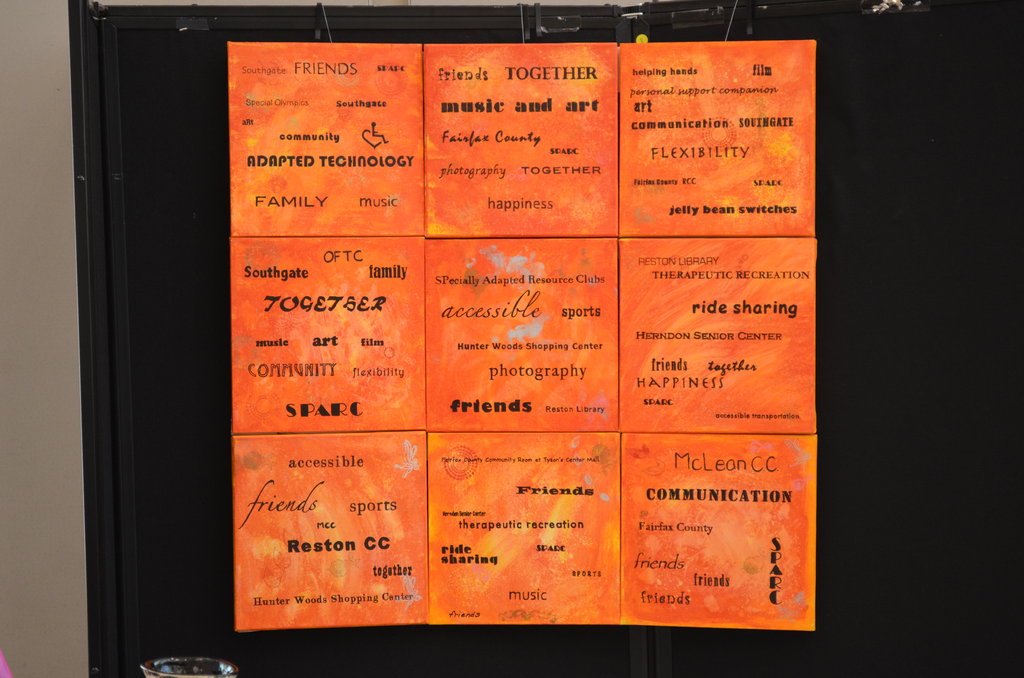 Southgate FRIENDS SPARC
Special Olympics Southgate
art
community
ADAPTED TECHNOLOGY
FAMILY music
friends TOGETHER
music and art
Fairfax County
SPARC
photography TOGETHER
happiness
helping hands film
personal support companion
art
communication SOUTHGATE
FLEXIBILITY
Fairfax County RCC SPARC
jelly bean switches
OFTC
Southgate family
TOGETHER
music art film
COMMUNITY flexibility
SPARC
SPecially Adapted Resource Clubs
accessible sports
Hunter Woods Shopping Center
photography
friends Reston Library
RESTON LIBRARY
THERAPEUTIC RECREATION
ride sharing
HERNDON SENIOR CENTER
friends together
HAPPINESS
SPARC
accessible transportation
accessible
friends sports
MCC
Reston CC
together
Hunter Woods Shopping Center
Fairfax County Community Room at Tyson's Center Mall
Friends
Herndon Senior Center
therapeutic recreation
ride sharing SPARC
SPORTS
music
friends
McLean CC.
COMMUNICATION
Fairfax County
SPARC
friends
friends
friends